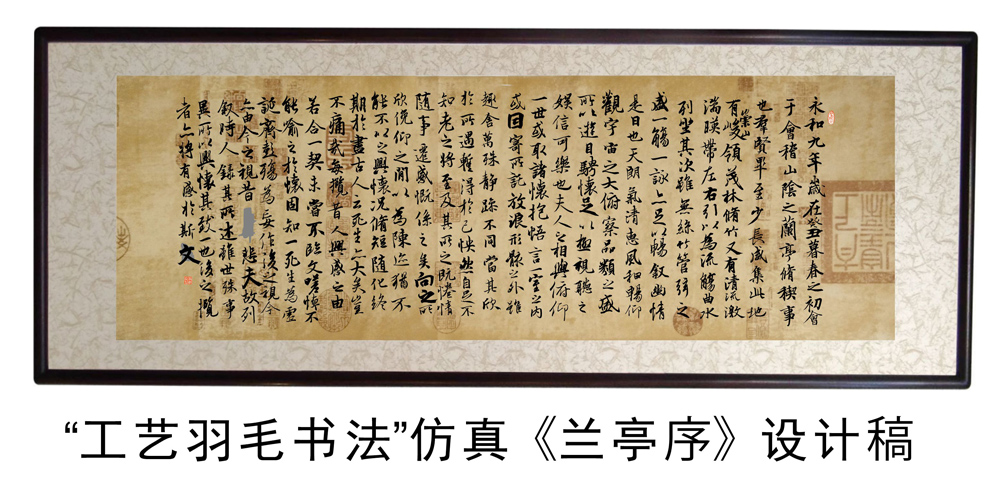 永和九年歲在癸丑暮春之初會
于會稽山陰之蘭亭脩禊事
也羣賢畢至少長咸集此地
有崇山峻領茂林脩竹又有清流激
湍暎帶左右引以為流觴曲水
列坐其次雖無絲竹管弦之
盛一觴一詠亦足以暢敘幽情
是日也天朗氣清惠風和暢仰
觀宇宙之大俯察品類之盛
所以遊目騁懷足以極視聽之
娛信可樂也夫人之相與俯仰
一世或取諸懷抱悟言一室之內
或因寄所託放浪形骸之外雖
趣舍萬殊靜躁不同當其欣
於所遇暫得於己怏然自足不
知老之將至及其所之既惓情
隨事遷感慨係之矣向之所
欣俛仰之閒以為陳迹猶不
能不以之興懷況脩短隨化終
期於盡古人云死生亦大矣豈
不痛哉每攬昔人興感之由
若合一契未嘗不臨文嗟悼不
能喻之於懷固知一死生為虛
誕齊彭殤為妄作後之視今
亦由今之視昔悲夫故列
敘時人錄其所述雖世殊事
異所以興懷其致一也後之攬
者亦將有感於斯文
“工艺羽毛书法”仿真《兰亭序》设计稿